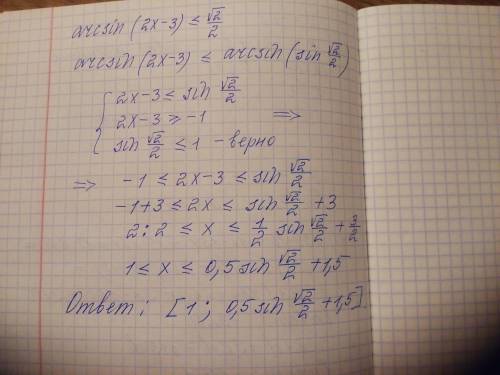 arcsin(2x-3) ≤ √2/2
arcsin(2x-3) ≤ arcsin(sin √2/2)
{ 2x-3 ≤ sin √2/2
2x-3 ≥ -1 =>
sin √2/2 ≤ 1 - верно
=> -1 ≤ 2x-3 ≤ sin √2/2
-1+3 ≤ 2x ≤ sin √2/2 +3
2:2 ≤ x ≤ 1/2 sin √2/2 +
1 ≤ x ≤ 0,5 sin √2/2 +1,5
Ответ: [1; 0,5 sin √2/2 +1,5].